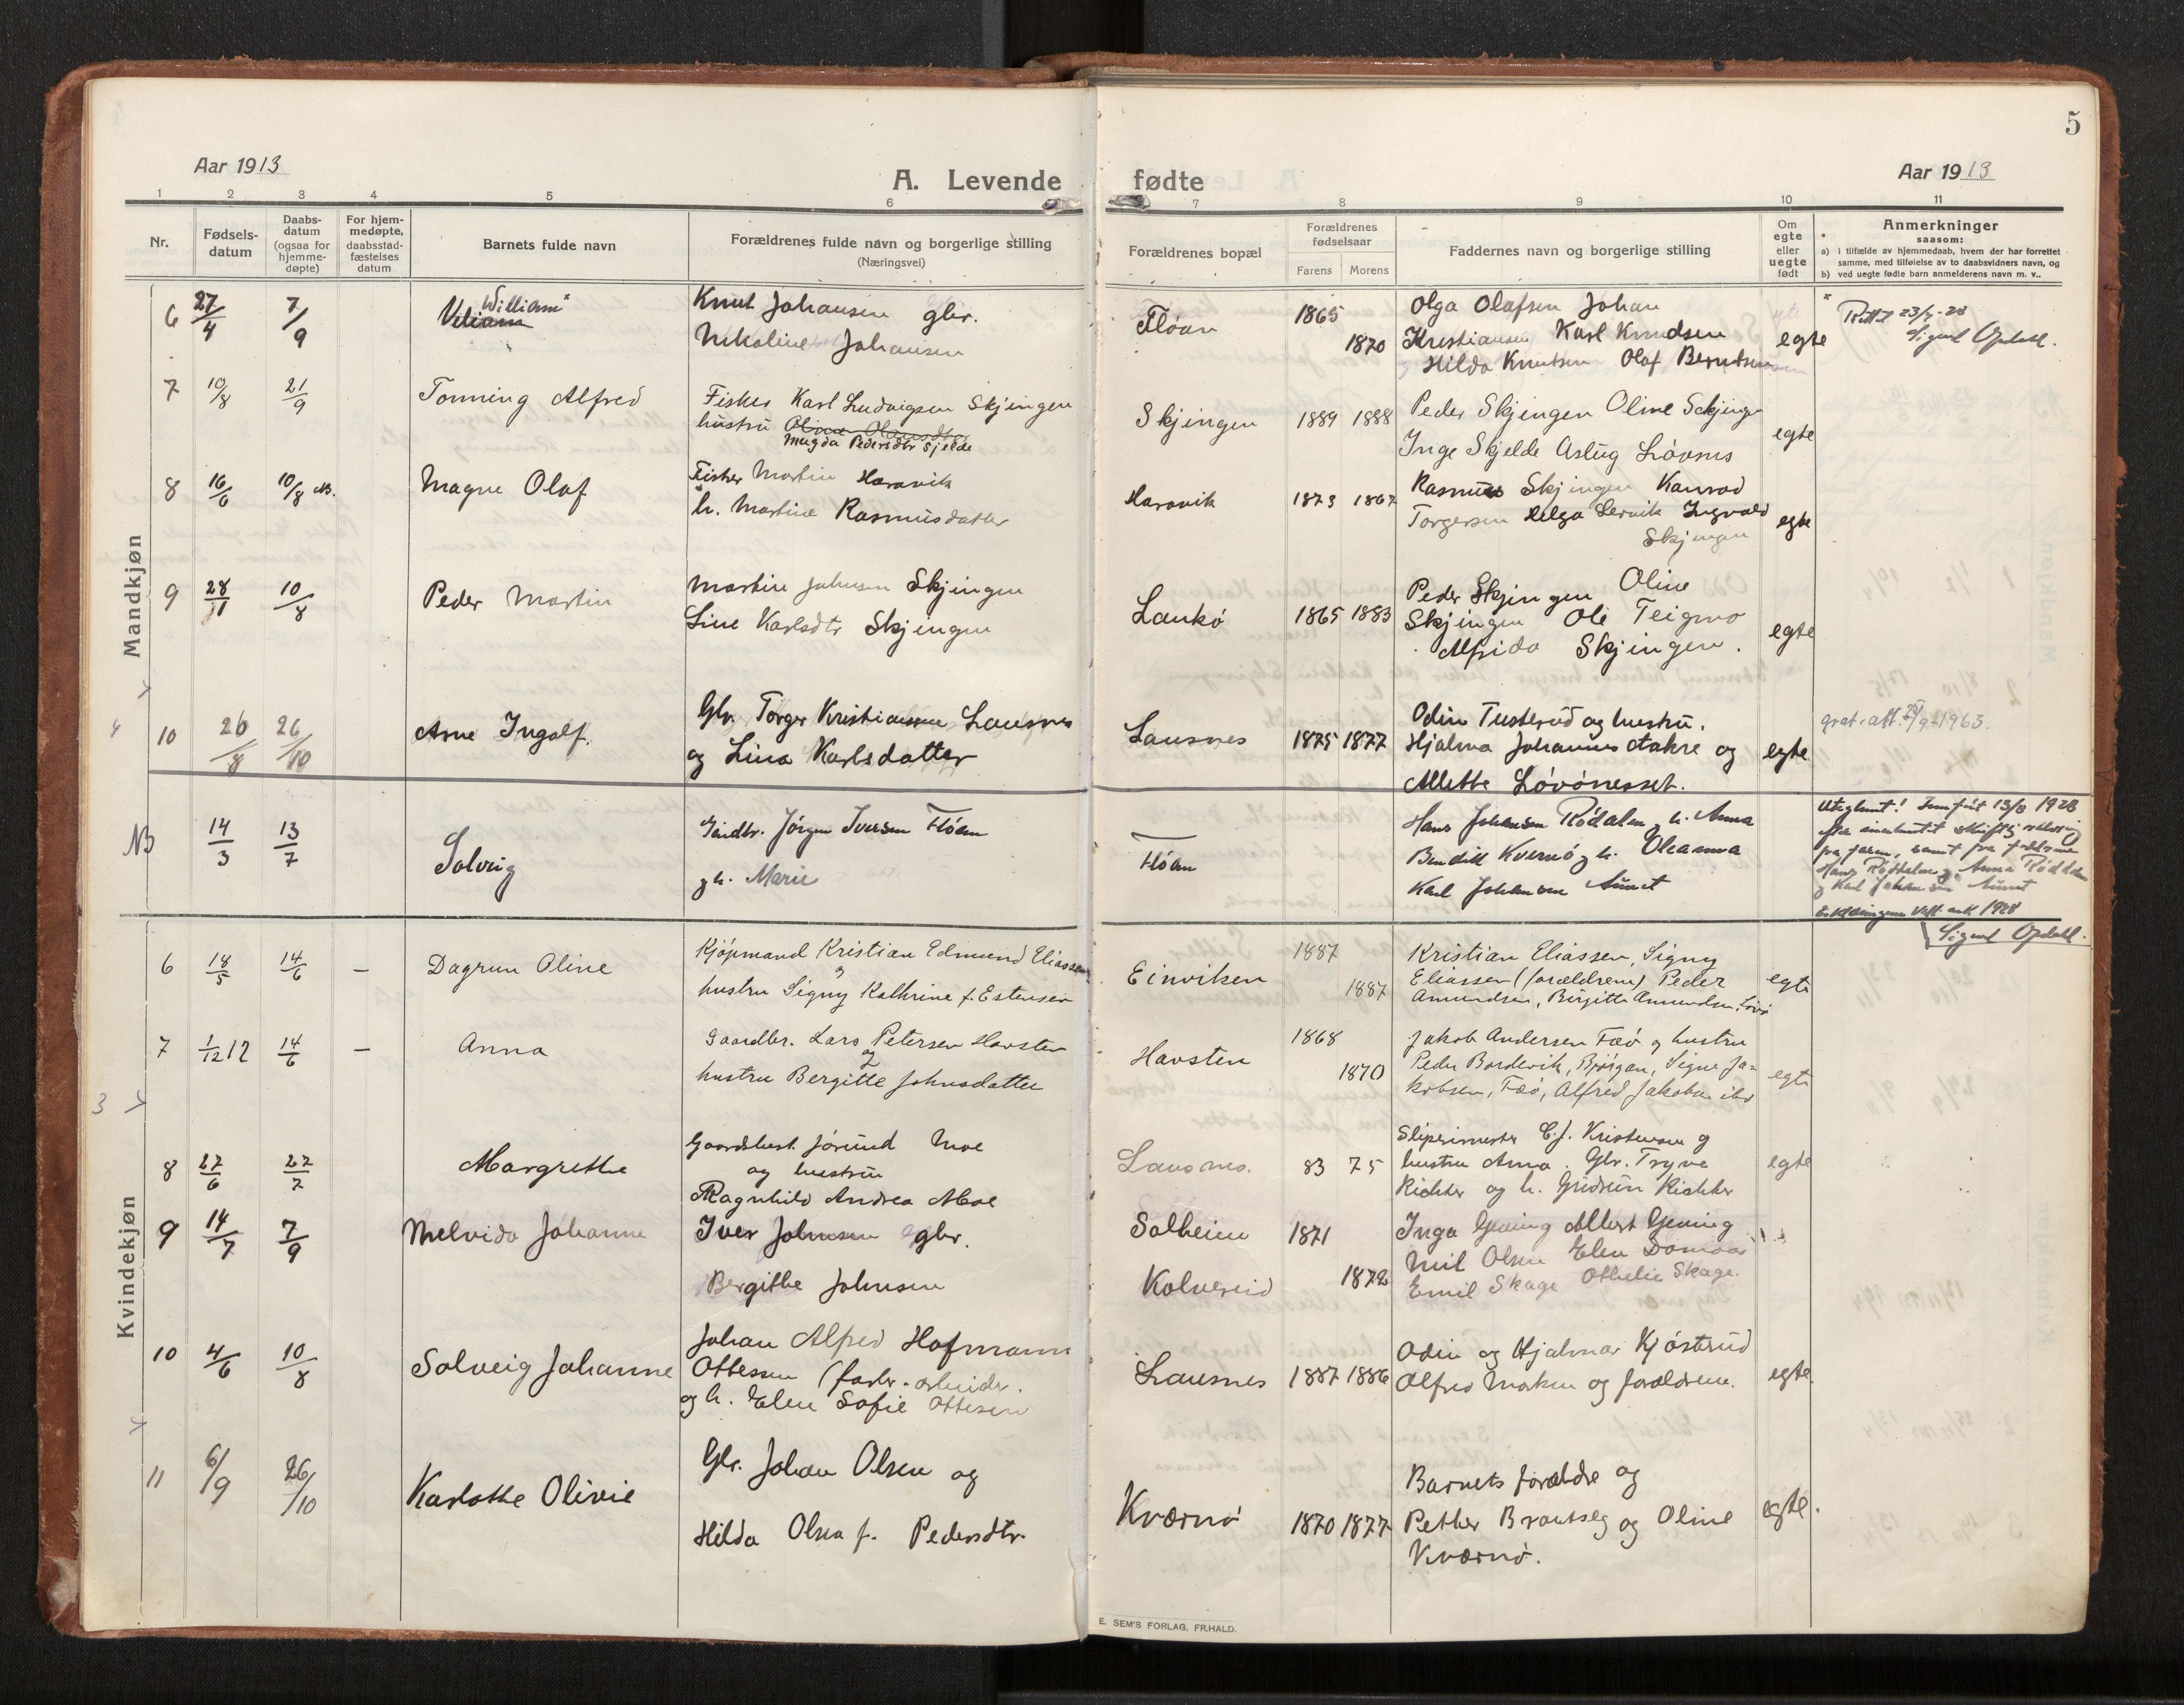 5
Aar 1913
A. Levende fødte
Aar 1913
1 2 3 4 5 6 7 8 9 10 11
Nr.
Fødsels-
datum
Daabs-
datum
(ogsaa for
hjemme-
døpte)
For hjem-
medøpte,
daabsstad-
fæstelses
datum
Barnets fulde navn
Forældrenes fulde navn og borgerlige stilling
(Næringsvei)
Forældrenes bopæl
Forældrenes
fødselsaar
Farens Morens
Faddernes navn og borgerlige stilling
Om
egte
eller
uegte
født
Anmerkninger
saasom:
a) i tilfælde av hjemmedaab, hvem der har forrettet
samme, med tilføielse av to daabsvidners navn, og
b) ved uegte fødte barn anmelderens navn m. v..
Mandkjøn
6 27/4 7/9 William* Knut Johansen gbr.
Nikoline Johansen
Flóan 1865 1870
Olga Olafsen Johan
Kristiansen Karl Knudsen
Hilda Knutsen Olaf Berntsen
egte
* Rettet 23/7-28
Sigurd Opdahl.
7 10/8 21/9 Tonning Alfred Fisker Karl Ludvigsen Skjingen
hustru Oline Olausdtr
Magda Pedersdtr Sjelde
Skjingen 1889 1888
Peder Skjingen Oline Schjingen
Inge Skjelde Aslug Lóvnes
egte
8 16/6 10/8 Magne Olaf Fisker Martin Haravik
h. Martine Rasmusdatter
Haravik 1873 1867
Rasmus Skjingen Konrad
Torgersen Helga Lervik Ingvald
Skjingen
egte
9 28/1 10/8 Peder Martin Martin Johnsen Skjingen
Line Karlsdtr Skjingen
Laukó 1865 1883
Peder Skjingen Oline
Skjingen Ole Teigmo
Alfrida Skjingen.
egte
4 10 26/8 26/10 Arne Ingolf. Gbr. Torger Kristiansen Lausnes
og Lina Karlsdatter
Lausnes 1875 1877
Odin Tusterud og hustru.
Hjalma Johannes Aakre og
Alette Lóvónesset.
egte
grat. att. 20/9-1963.
NB 14/3 13/7 Solvig Gaardbr. Jörgen Iversen Flóan
og h. Marie
Flóan
Hans Johansen Rödalen og h. Anna
Bendikt Kvernö og h. Oleanna
Karl Johansen Aunet
Uteglemt! Innført 13/8 1928
efter innhentet skriftlig erklæring
fra faren, samt fra fadderne
Hans Røddalen og Anna Røddalen
og Karl Johansen Aunet
1928
Sigurd Opdahl.
Kvindekjøn
6 18/5 14/6 – Dagrun Oline Kjöpmand Kristian Edmund Eliassen
og
hustru Signy Kathrine f. Estensen
Einviken 1887 1887
Kristian Eliassen, Signy
Eliassen (forældrene) Peder
Amundsen, Birgitte Amundsen,
egte
7 1/12 12 14/6 – Anna Gaardbr. Lars Petersen Havsten
og
hustru Bergitte Johnsdatter
Havsten 1868 1870
Jakob Andersen Fæó og hustru
Peder Bordevik, Bjórgan, Signe Ja-
kobsen, Fæó, Alfred Jakobsen ibd
egte
3
8 27/6 27/7 Margrethe Gaardbest. Jörund Moe
og hustru
Ragnhild Andrea Moe
Lausnes. 83 75
Sliperimester C. J. Kristensen og
hustru Anna. Gbr. Trygve
Richter og h. Gudrun Richter
egte
9 14/7 7/9 Melvida Johanne Iver Johnsen gbr.
Bergithe Johnsen
Solheim 1871
Kolvereid 1872
Inga Gening Albert Gening
Mil Olsen Elen Domaas
Emil Skage Othelie Skage.
10 4/6 10/8 Solveig Johanne Johan Alfred Hofmann
Ottesen (fabr. arbeider.
og h. Elen Sofie Ottesen
Lausnes 1887 1886
Odin og Hjalmar Kjósterud
Alfred Morken og forældrene.
egte.
11 6/9 26/10 Karlotte Olivie Gbr. Johan Olsen og
Hilda Olsen f. Pedersdtr.
Kværnó 1870 1877
Barnets forældre og
Petter Brautseg og Oline
Kværnó.
egte.
E. SEM'S FORLAG, FR.HALD.